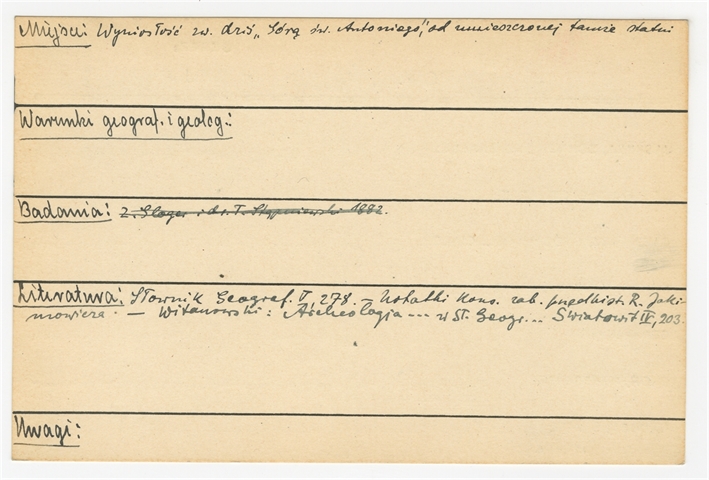 Miejsce: Wyniosłość zw. dziś „Górą św. Antoniego”, od umieszczonej tamże statui
Warunki geograf. i geolog.:
Badania: Z. Gloger i dr. T. Stępniewski 1882.
Literatura: Słownik Geograf. V, 278. – Notatki Kons. zab. przedhist. R. Jaki-
mowicza. – Witanowski: Archeologja --- w Sł. Geogr... Światowit IV, 203.
Uwagi: